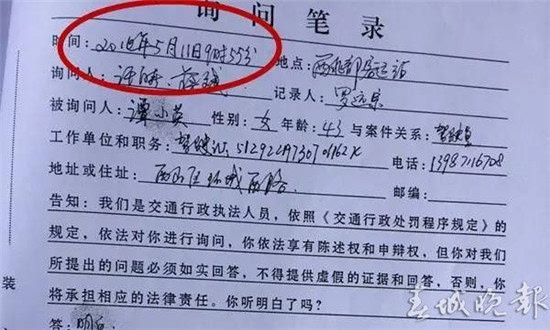 询问笔录
时间：2016年5月11日9时55分 地点：西北部客运站
询问人：许 记录人：罗
被询问人：谭小英 性别：女 年龄：43 与案件关系：驾驶员
工作单位和职务：驾驶 电话：13987116708
地址或住址：西山区环城西路 邮编：
告知：我们是交通行政执法人员，依照《交通行政处罚程序规定》的
规定，依法对你进行询问，你依法享有陈述权和申辩权，但你对我们
所提出的问题必须如实回答，不得提供虚假的证据和回答，否则，你
将承担相应的法律责任。你听明白了吗？
答：明白
装
春城晚报